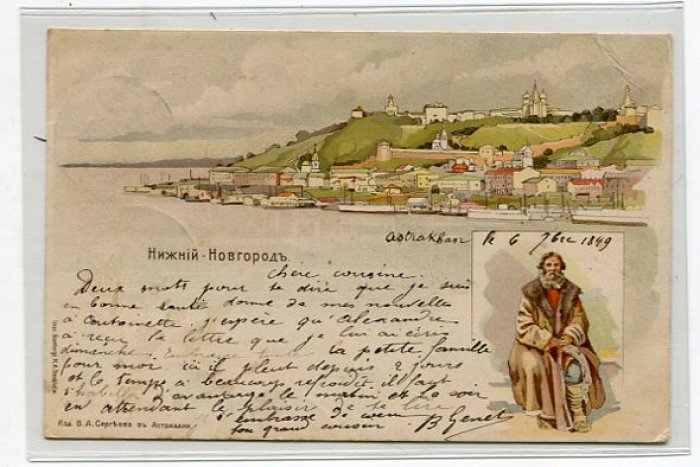 Astrakhan le 6 7bre 1899
Нижній-Новгородъ.
chère cousine.
Deux mots pour te dire que je suis
en bonne santé donne de mes nouvelles
à j'espère qu'Alexandre
à reçu la lettre que je lui ai écris
dimanche. Embrasse toute la petite famille
pour moi, ici il pleut depuis 2 jours
et le temps a beaucoup refroidit il faut
s'habiller d'avantage le matin et le soir
en attendant le plaisir de te lire
t'embrasse de coeur
ton grand cousin B Genet
Изд. В. А. Сергѣева въ Астрахани.